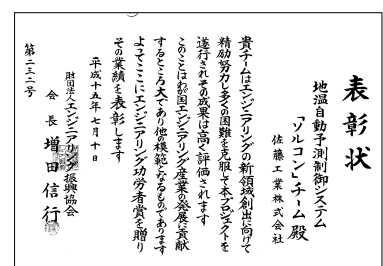 表彰状
地温自動予測制御システム
「ソルコン」チーム殿
佐藤工業株式会社
貴チームはエンジニアリングの新領域創出に向けて
精励努力し多くの困難を克服して本プロジェクトを
遂行されその成果は高く評価されます
このことはわが国エンジニアリング産業の発展に貢献
するところ大であり他の模範となるものであります
よってここにエンジニアリング功労者賞を贈り
その業績を表彰します
平成十五年七月十日
財団法人エンジニアリング振興協会
会長 増田信行
第二三二号